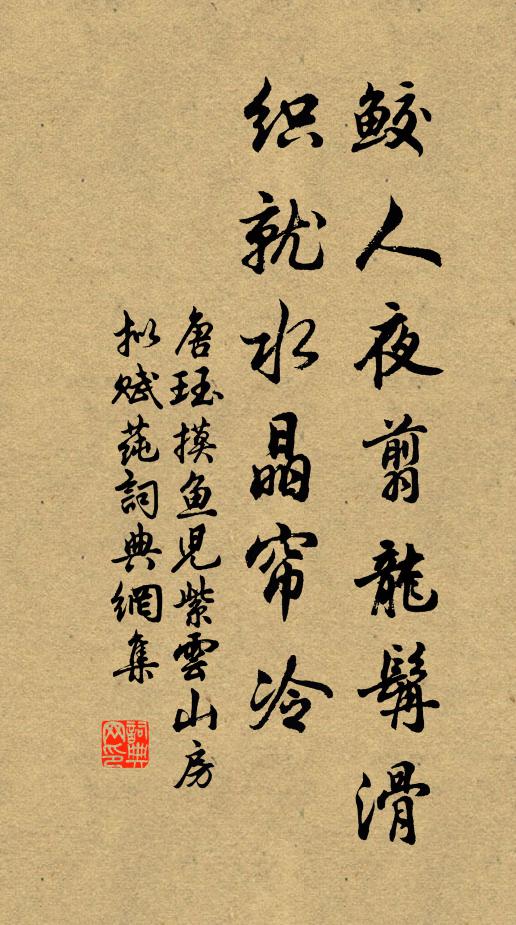 鲛人夜翦龍髯滑
织就水晶帘冷
唐珏摸鱼児紫雲山房
拟赋莼詞典網集
詞典网印